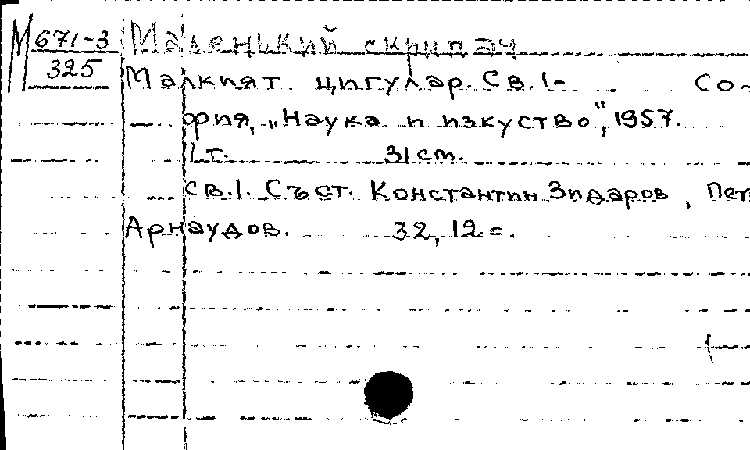 М 671-3 Маленький скрипач
325 Малкият цигулар. Св. 1- Со-
фия, „Наука и изкуство", 1957.
1 т. 31 cm.
св. 1. Съст. Константин Зидаров, Пет
Арнаудов. 32, 12 с.